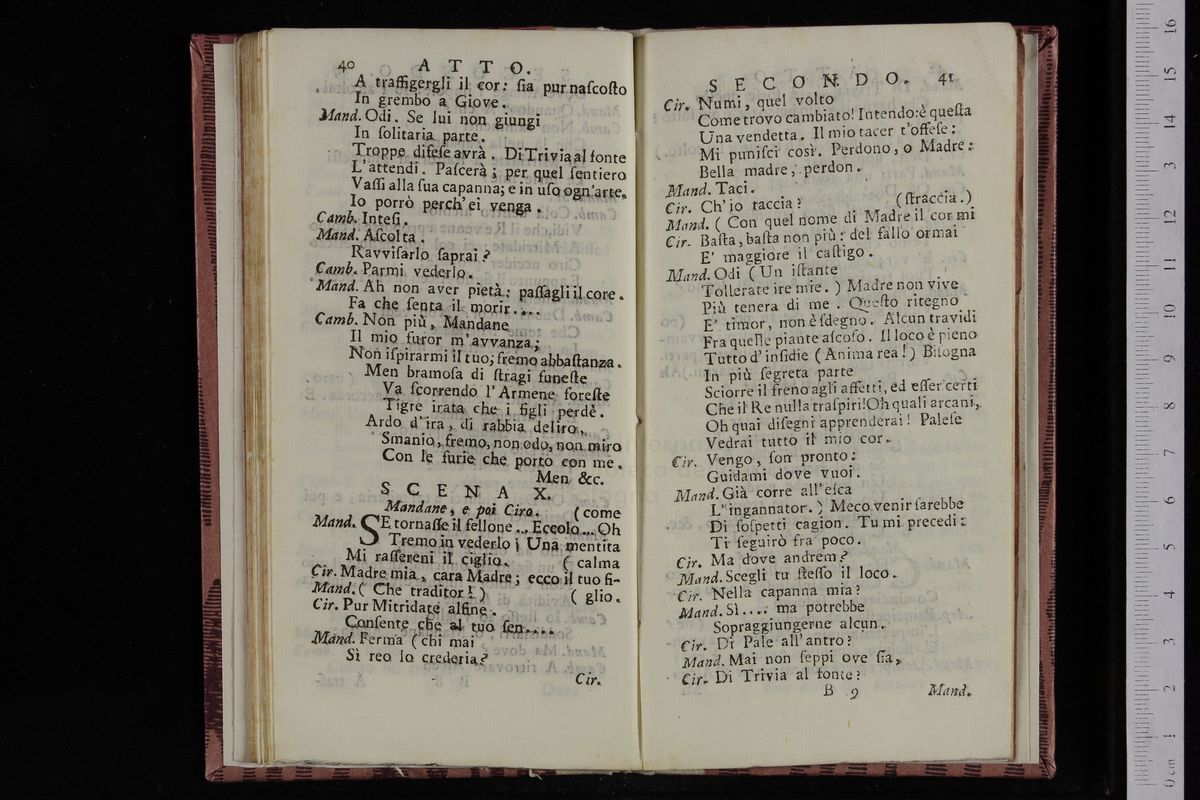 40 A T T O.
A traffigergli il cor: ſia pur naſcoſto
In grembo a Giove.
Mand. Odi. Se lui non giungi
In ſolitaria parte.
Troppe difeſe avrà. Di Trivia al fonte
L'attendi. Paſcerà; per quel ſentiero
Vaſſi alla ſua capanna; e in uſo ogn'arte.
Io porrò perch'ei venga.
Camb. Inteſi.
Mand. Aſcolta.
Ravviſarlo ſaprai?
Camb. Parmi vederlo.
Mand. Ah non aver pietà: paſſagli il core.
Fa che ſenta il morir....
Camb. Non più, Mandane
Il mio furor m'avvanza;
Non iſpirarmi il tuo; fremo abbaſtanza.
Men bramoſa di ſtragi funeſte
Va ſcorrendo l'Armene foreſte
Tigre irata che i figli perdè.
Ardo d'ira, di rabbia deliro,
Smanio, fremo, non odo, non miro
Con le furie che porto con me.
Men &c.
S C E N A X.
Mandane, e poi Ciro. (come
Mand. SE tornaſſe il fellone... Eccolo... Oh
Tremo in vederlo! Una mentita
Mi raſſereni il ciglio. ( calma
Cir. Madre mia, cara Madre; ecco il tuo fi-
Mand. ( Che traditor! ) ( glio.
Cir. Pur Mitridate alfine..
Conſente che al tuo ſen....
Mand. Ferma (chi mai
Sì reo lo crederia?
Cir.
S E C O N D O. 41
Cir. Numi, quel volto
Come trovo cambiato! Intendo: è queſta
Una vendetta. Il mio tacer t'offeſe:
Mi puniſci così. Perdono, o Madre:
Bella madre, perdon.
Mand. Taci.
Cir. Ch'io taccia? (ſtraccia.)
Mand. ( Con quel nome di Madre il cor mi
Cir. Baſta, baſta non più: del fallo ormai
E' maggiore il caſtigo.
Mand. Odi (Un iſtante
Tollerate ire mie. ) Madre non vive
Più tenera di me. Queſto ritegno
E' timor, non è ſdegno. Alcun travidi
Fra quelle piante aſcoſo. Il loco è pieno
Tutto d'inſidie (Anima rea!) Biſogna
In più ſegreta parte
Sciorre il freno agli affetti, ed eſſer certi
Che il Re nulla traſpiri! Oh quali arcani,
Oh quai diſegni apprenderai! Paleſe
Vedrai tutto il mio cor.
Cir. Vengo, ſon pronto:
Guidami dove vuoi.
Mand. Già corre all'eſca
L'ingannator.) Meco venir ſarebbe
Di ſoſpetti cagion. Tu mi precedi:
Ti ſeguirò fra poco.
Cir. Ma dove andrem?
Mand. Scegli tu ſteſſo il loco.
Cir. Nella capanna mia?
Mand. Sì.... ma potrebbe
Sopraggiungerne alcun.
Cir. Di Pale all'antro?
Mand. Mai non ſeppi ove ſia,
Cir. Di Trivia al fonte?
B 9 Mand.